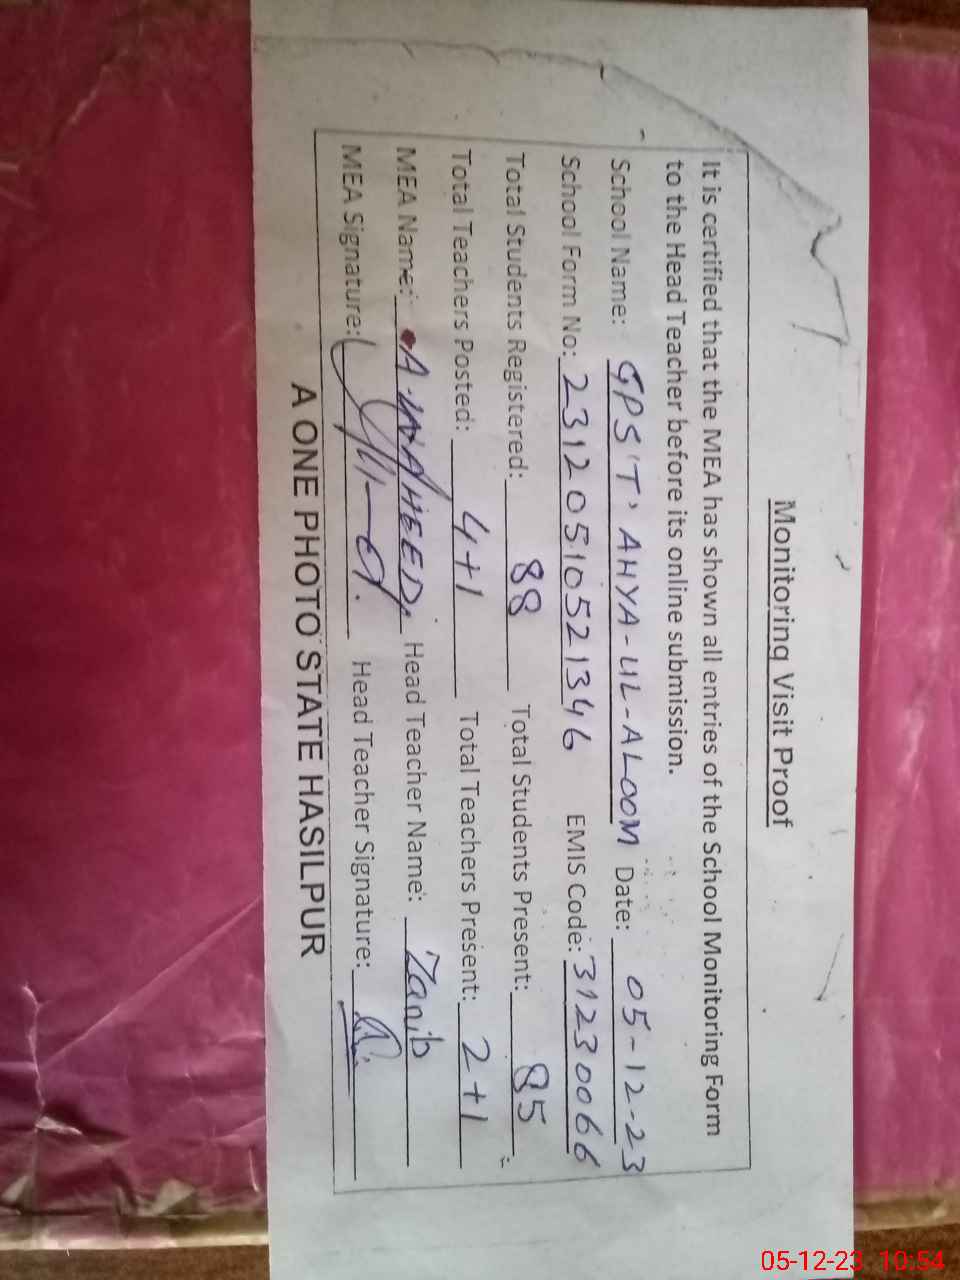 Monitoring Visit Proof
It is certified that the MEA has shown all entries of the School Monitoring Form
to the Head Teacher before its online submission.
School Name: GPS 'T' AHYA-UL-ALOOM Date: 05-12-23
School Form No: 23120510521346 EMIS Code: 31230066
Total Students Registered: 88 Total Students Present: 85
Total Teachers Posted: 4+1 Total Teachers Present: 2+1
MEA Name: Head Teacher Name: Zanib
MEA Signature: Head Teacher Signature:
A ONE PHOTO STATE HASILPUR
05-12-23 10:54